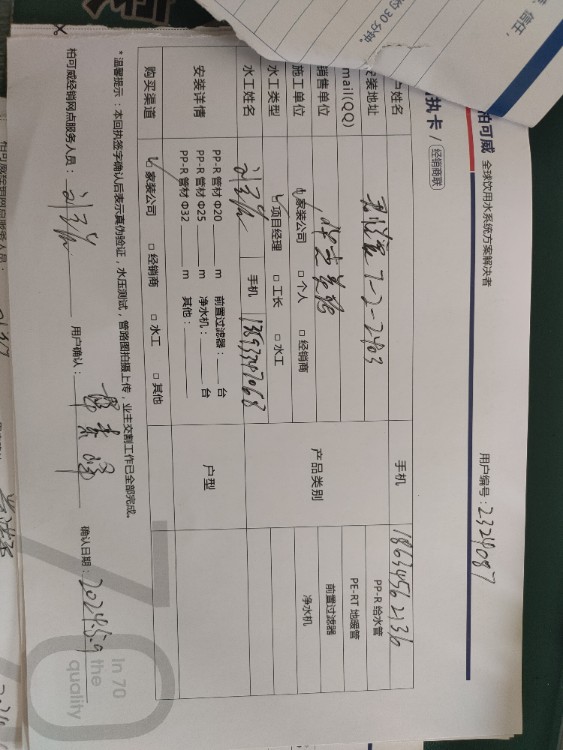 信任
约30分钟。
柏可威 全球饮用水系统方案解决者
用户编号：2324087
执卡 / 经销商联
户姓名
手机 18634562136
装地址 7-2-2403
PP-R 给水管
mail(QQ)
PE-RT 地暖管
销售单位
产品类别
前置过滤器
施工单位 家装公司 □ 个人 □ 经销商
净水机
水工类型 项目经理 □ 工长 □ 水工
水工姓名 手机
安装详情
PP-R 管材 Φ20 m 前置过滤器： 台
PP-R 管材 Φ25 m 净水机： 台
PP-R 管材 Φ32 m 其他：
户型
购买渠道 家装公司 □ 经销商 □ 水工 □ 其他
* 温馨提示：本回执签字确认后表示真伪验证，水压测试，管路图拍摄上传，业主交割工作已全部完成。
柏可威经销网点服务人员： 用户确认： 确认日期：2024.5.9
In 70
the
quality
柏可威经销网点服务人员：